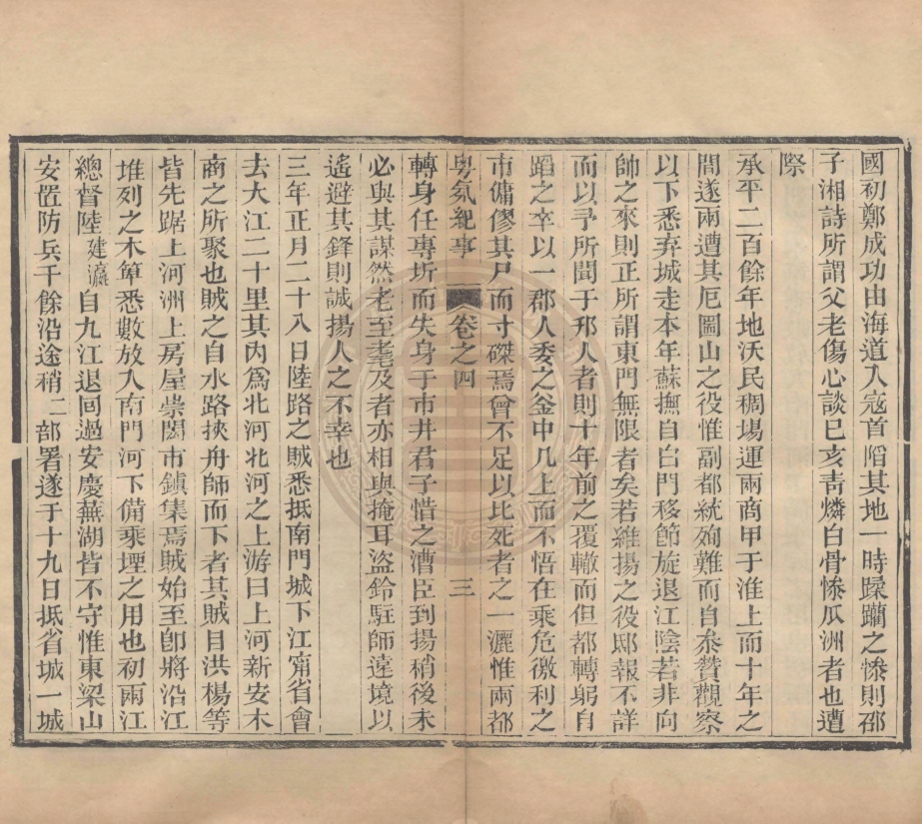 國初鄭成功由海道入寇首陷其地一時躁躪之慘則邵
子湘詩所謂父老傷心談已亥青燐白骨慘瓜洲者也遭
際
承平二百餘年地沃民稠場運兩商甲于淮上而十年之
間遂兩遭其厄圖山之役惟副都統殉難而自叅贊觀察
以下悉弃城走本年蘇撫自白門移節旋退江陰若非向
帥之來則正所謂東門無限者矣若維揚之役邸報不詳
而以予所聞于邗人者則十年前之覆轍而但都轉躬自
蹈之幸以一郡人委之釜中几上而不悟在乘危徼利之
市傭僇其尸而寸磔焉曾不足以比死者之一灑惟兩都
粵氛紀事 卷之四 三
轉身任專圻而失身于市井君子惜之漕臣到揚稍後未
必與其謀然老至耄及者亦相與掩耳盜鈴駐師遠境以
遙避其鋒則誠揚人之不幸也
三年正月二十八日陸路之賊悉抵南門城下江甯省會
去大江二十里其內爲北河北河之上游曰上河新安木
商之所聚也賊之自水路挾舟師而下者其賊目洪楊等
皆先踞上河洲上房屋崇閎市鎮集焉賊始至卽將沿江
堆列之木簰悉數放入南門河下備乘堙之用也初兩江
總督陸建瀛自九江退回過安慶蕪湖皆不守惟東梁山
安置防兵千餘沿途稍二部署遂于十九日抵省城一城